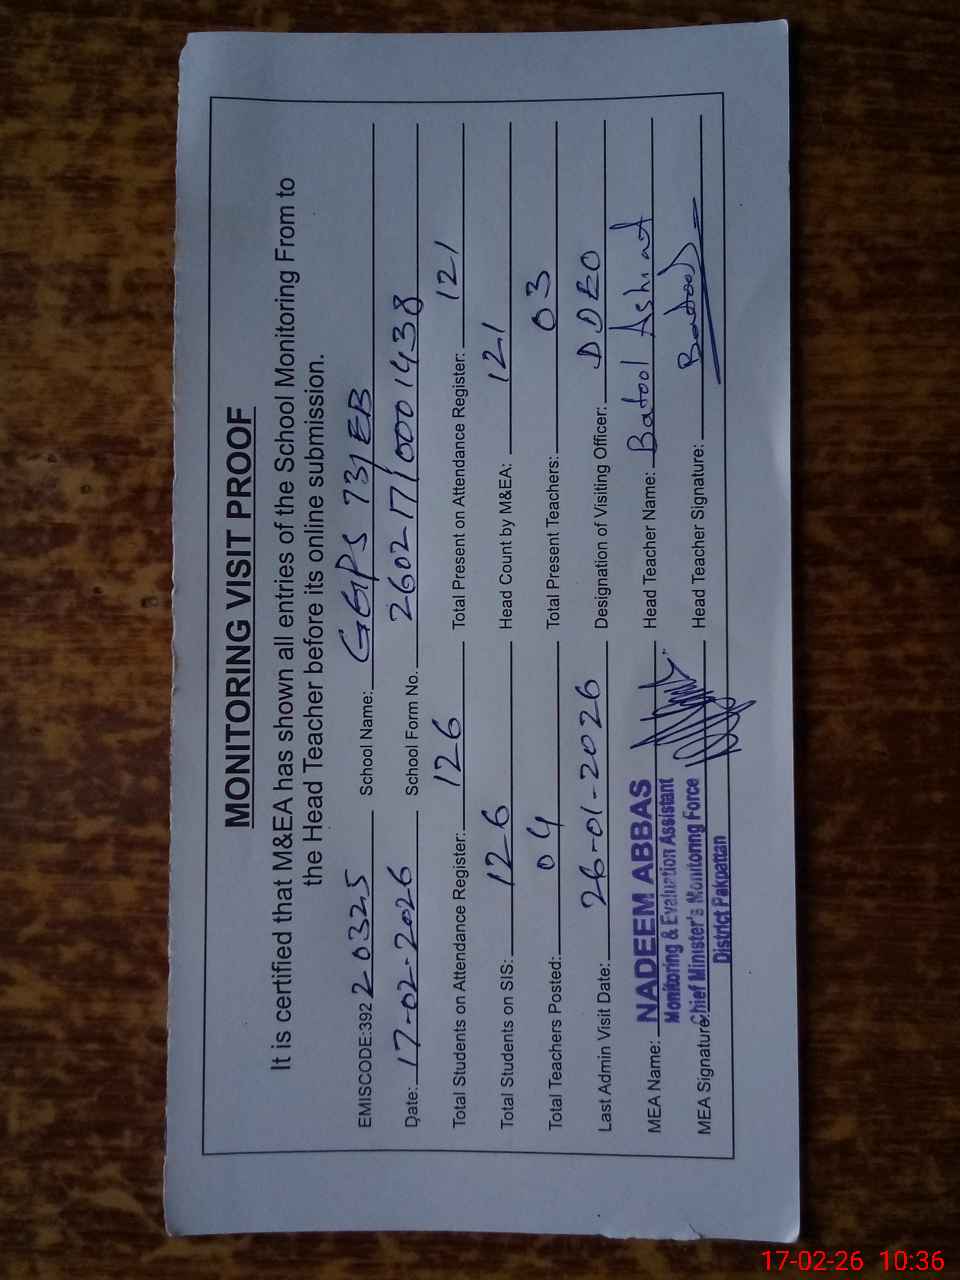 MONITORING VISIT PROOF
It is certified that M&EA has shown all entries of the School Monitoring From to
the Head Teacher before its online submission.
EMISCODE:392 20325 School Name: GGPS 73/EB
Date: 17-02-2026 School Form No. 260217/0001438
Total Students on Attendance Register: 126 Total Present on Attendance Register: 121
Total Students on SIS: 126 Head Count by M&EA: 121
Total Teachers Posted: 04 Total Present Teachers: 03
Last Admin Visit Date: 26-01-2026 Designation of Visiting Officer: DDEO
MEA Name: NADEEM ABBAS Head Teacher Name: Batool Ashraf
Monitoring & Evaluation Assistant
MEA Signature: Chief Minister's Monitoring Force Head Teacher Signature: Batool
District Pakpattan
17-02-26 10:36